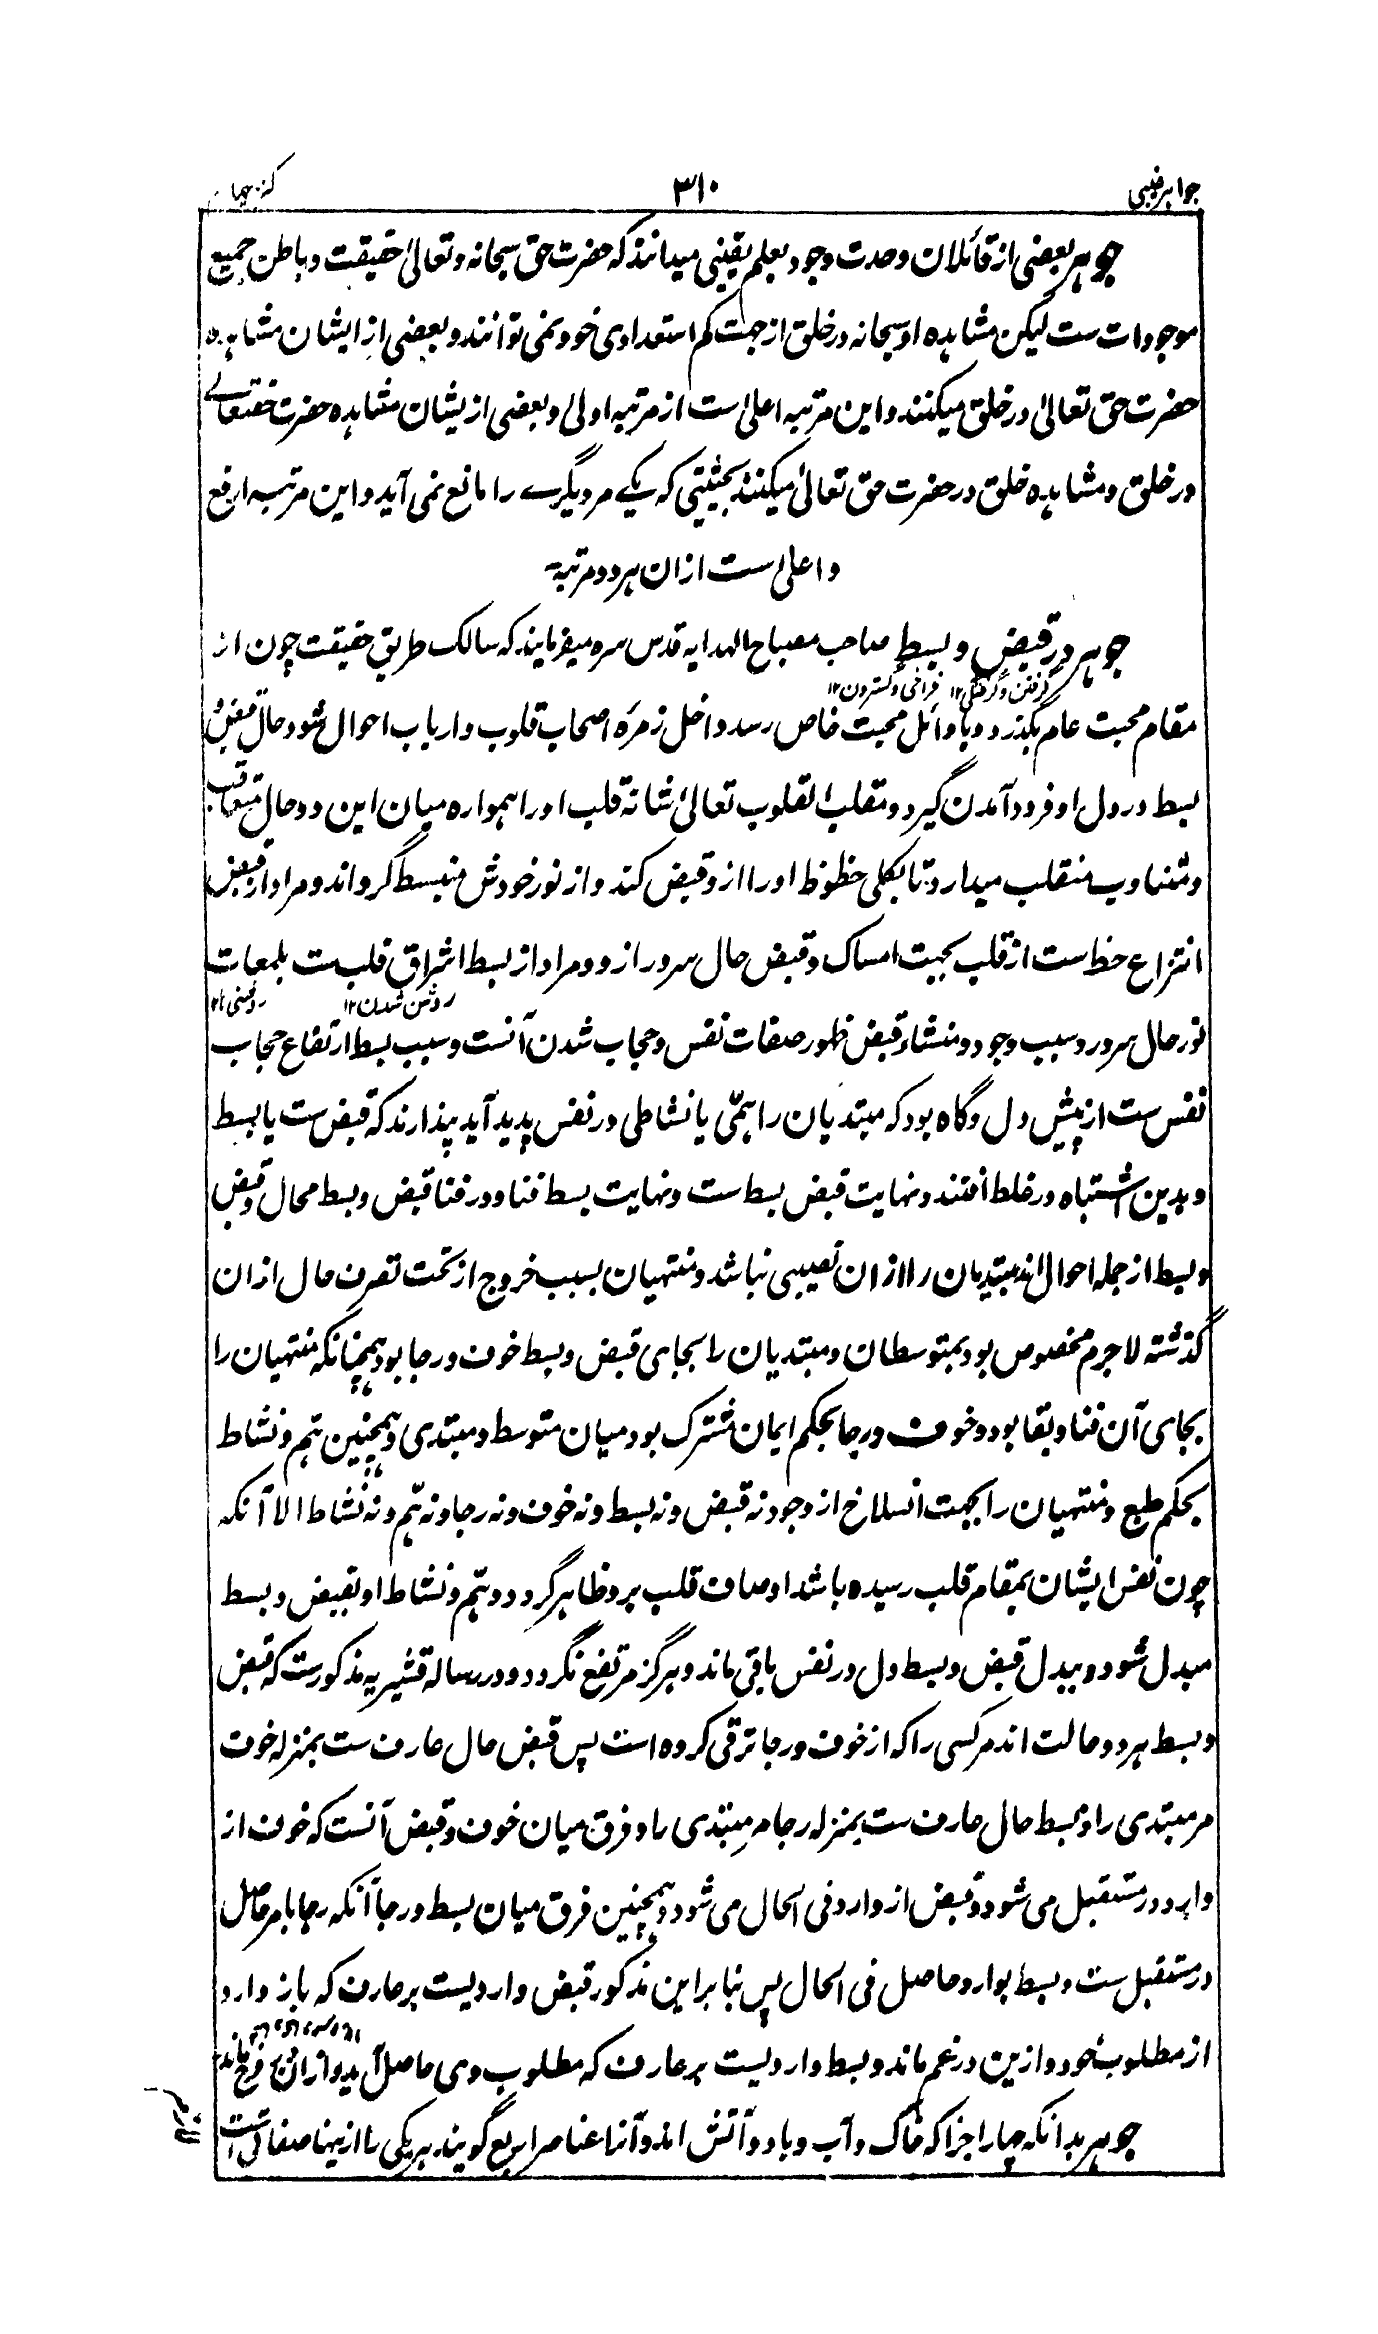 جواہر غیبی
۳۱۰
جوہر بعضی از قائلان وحدت وجود بعلم یقینی میدانند که حضرت حق سبحانه و تعالیٰ حقیقت و باطن جمیع
موجودات ست لیکن مشاہدہ او سبحانه در خلق از جهت کم استعدادی خود نمی توانند و بعضی از ایشان مشاہدہ
حضرت حق تعالیٰ در خلق میکنند و این مرتبه اعلیٰ ست از مرتبه اولیٰ و بعضی از یشان مشاہدہ حضرت حقتعالے
در خلق و مشاہدہ خلق در حضرت حق تعالیٰ میکنند بحیثیتی که یکے مر دیگرے را مانع نمی آید و این مرتبه ارفع
و اعلیٰ ست ازان ہر دو مرتبه
جوہر در قبض و بسط صاحب مصباح الہدایه قدس سره میفرمایند که سالک طریق حقیقت چون از
گرفتن و گرفتگی۱۲ فراخی و گسترون۱۲
مقام محبت عام بگذرد و باوائل محبت خاص رسد داخل زمره اصحاب قلوب و ارباب احوال شود و حال قبض و
بسط در دل او فرود آمدن گیرد و مقلب القلوب تعالیٰ شانه قلب او را ہمواره میان این دو حال متعاقب
و متناوب منقلب میدارد تا بکلی حظوظ او را از و قبض کند و از نور خودش منبسط گرداند و مراد از قبض
انتزاع حظ ست از قلب بجهت امساک و قبض حال سرور از و و مراد از بسط اشراق قلب ست بلمعات
روشن شدن۱۲ روشنی۱۲
نور حال سرور و سبب وجود و منشاء قبض ظهور صفات نفس و حجاب شدن آنست و سبب بسط ارتفاع حجاب
نفس ست از پیش دل و گاه بود که مبتدیان را ہمّی یا نشاطی در نفس پدید آید پندارند که قبض ست یا بسط
و بدین اشتباه در غلط افتند و نهایت قبض بسط ست و نهایت بسط فنا و در فنا قبض و بسط محال و قبض
و بسط از جمله احوال اند مبتدیان را ازان نصیبی نباشد و منتهیان بسبب خروج از تحت تصرف حال ازان
گذشته لاجرم مخصوص بود بمتوسطان و مبتدیان را بجای قبض و بسط خوف و رجا بود ہمچنانکه منتهیان را
بجای آن فنا و بقا بود و خوف و رجا بحکم ایمان مشترک بود میان متوسط و مبتدی و ہمچنین ہم و نشاط
بحکم طبع و منتهیان را بجهت انسلاخ از وجود نه قبض و نه بسط و نه خوف و نه رجا و نه ہم و نه نشاط الا آنکه
چون نفس ایشان بمقام قلب رسیده باشد اوصاف قلب برو ظاہر گردد و ہم و نشاط او بقبض و بسط
مبدل شود و بیدل قبض و بسط دل در نفس باقی ماند و ہرگز مرتفع نگردد و در رساله قشیریه مذکورست که قبض
و بسط ہر دو حالت اند مر کسی را که از خوف و رجا ترقی کرده است پس قبض حال عارف ست بمنزله خوف
مر مبتدی را و بسط حال عارف ست بمنزله رجا مر مبتدی را و فرق میان خوف و قبض آنست که خوف از
وارد در مستقبل می شود و قبض از وارد فی الحال می شود و ہمچنین فرق میان بسط و رجا آنکه رجا بامر حاصل
در مستقبل ست و بسط بوارد حاصل فی الحال پس بنا براین مذکور قبض واردیست بر عارف که باز دارد
از مطلوب خود و ازین در غم ماند و بسط واردیست بر عارف که مطلوب وی حاصل آید و ازان بفرح ماند
جوہر بدانکه چہار اجزا که خاک و آب و باد و آتش اند و آنها عناصر اربع گویند ہر یکی را ازینها صفاتی است